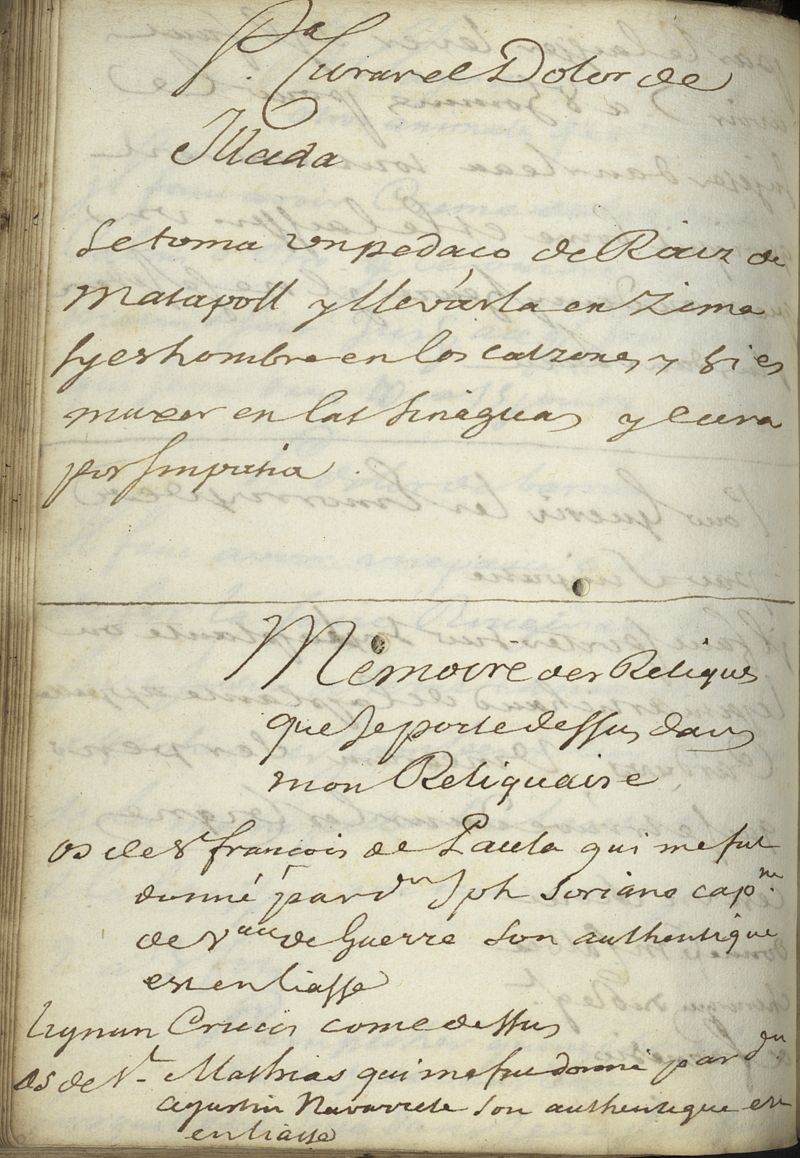 Pa Curar el Dolor de
Yllada
Se toma un pedaco de Raiz de
Matapoll y llevarla en Zima
sy es hombre en los calzones y si es
muxer en las sinaguas y cura
por simpatia.
Mémoire des Reliques
que Je porte dessus dans
mon Reliquaire
os de St françois de Paula qui me fut
donné par dn Jph Soriano capne
de Vau de Guerre son authentique
est en liasse
Lignun Crucis come dessus
os de St Mathias qui me fue donné par dn
Agustin Navarrete son authentique est
en liasse